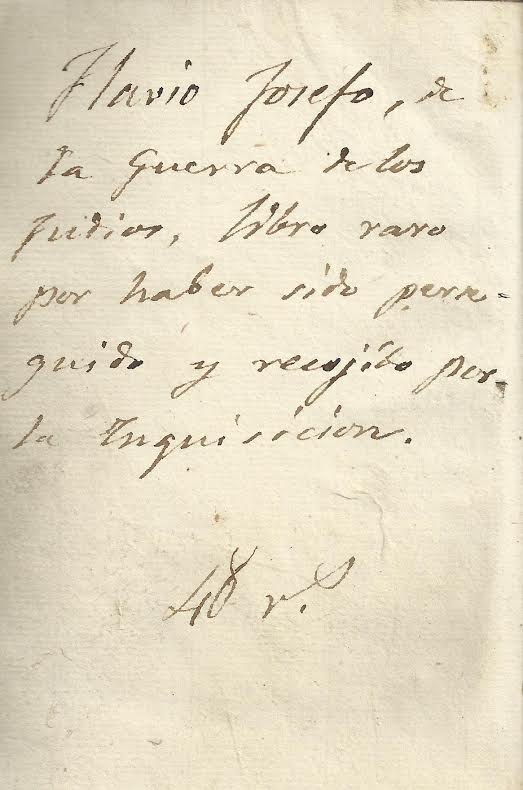 Flavio Josefo, de
la Guerra de los
Judios, libro raro
por haber sido perse-
guido y recojido por
la Inquisicion.
48 r.s